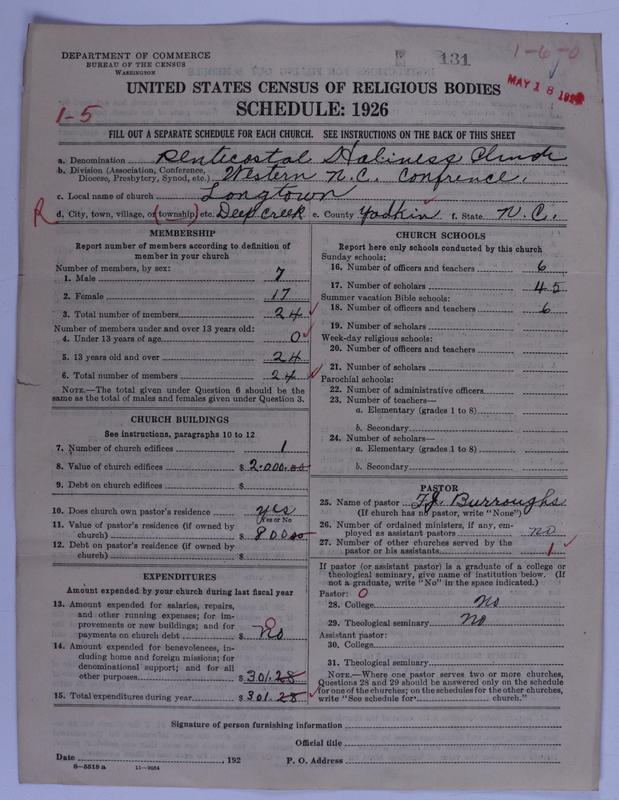 DEPARTMENT OF COMMERCE
BUREAU OF THE CENSUS
WASHINGTON
131
1-6-0
MAY 18
1-5
UNITED STATES CENSUS OF RELIGIOUS BODIES
SCHEDULE: 1926
FILL OUT A SEPARATE SCHEDULE FOR EACH CHURCH. SEE INSTRUCTIONS ON THE BACK OF THIS SHEET
a. Denomination Pentecostal Holiness Church
b. Division (Association, Conference, Diocese, Presbytery, Synod, etc.) Western N.C. Confrence.
c. Local name of church Longtown
R d. City, town, village, or (township) etc. Deep Creek e. County Yadkin f. State N.C.
MEMBERSHIP
Report number of members according to definition of
member in your church
Number of members, by sex:
1. Male 7
2. Female 17
3. Total number of members 24
Number of members under and over 13 years old:
4. Under 13 years of age 0
5. 13 years old and over 24
6. Total number of members 24
NOTE.—The total given under Question 6 should be the
same as the total of males and females given under Question 3.
CHURCH BUILDINGS
See instructions, paragraphs 10 to 12
7. Number of church edifices 1
8. Value of church edifices $ 2.000.00
9. Debt on church edifices $
10. Does church own pastor's residence yes
(Yes or No)
11. Value of pastor's residence (if owned by
church) $ 800.00
12. Debt on pastor's residence (if owned by
church) $
EXPENDITURES
Amount expended by your church during last fiscal year
13. Amount expended for salaries, repairs,
and other running expenses; for im-
provements or new buildings; and for
payments on church debt $ no 0
14. Amount expended for benevolences, in-
cluding home and foreign missions; for
denominational support; and for all
other purposes $ 301.28
15. Total expenditures during year $ 301.28
CHURCH SCHOOLS
Report here only schools conducted by this church
Sunday schools:
16. Number of officers and teachers 6
17. Number of scholars 45
Summer vacation Bible schools:
18. Number of officers and teachers 6
19. Number of scholars
Week-day religious schools:
20. Number of officers and teachers
21. Number of scholars
Parochial schools:
22. Number of administrative officers
23. Number of teachers—
a. Elementary (grades 1 to 8)
b. Secondary
24. Number of scholars—
a. Elementary (grades 1 to 8)
b. Secondary
PASTOR
25. Name of pastor T.J. Burroughs
(If church has no pastor, write "None")
26. Number of ordained ministers, if any, em-
ployed as assistant pastors no
27. Number of other churches served by the
pastor or his assistants 1
If pastor (or assistant pastor) is a graduate of a college or
theological seminary, give name of institution below. (If
not a graduate, write "No" in the space indicated.)
Pastor: 0
28. College No
29. Theological seminary No
Assistant pastor:
30. College
31. Theological seminary
NOTE.—Where one pastor serves two or more churches,
Questions 28 and 29 should be answered only on the schedule
for one of the churches; on the schedules for the other churches,
write "See schedule for church."
Signature of person furnishing information
Official title
Date , 192 P. O. Address
8—5518 a 11—9054